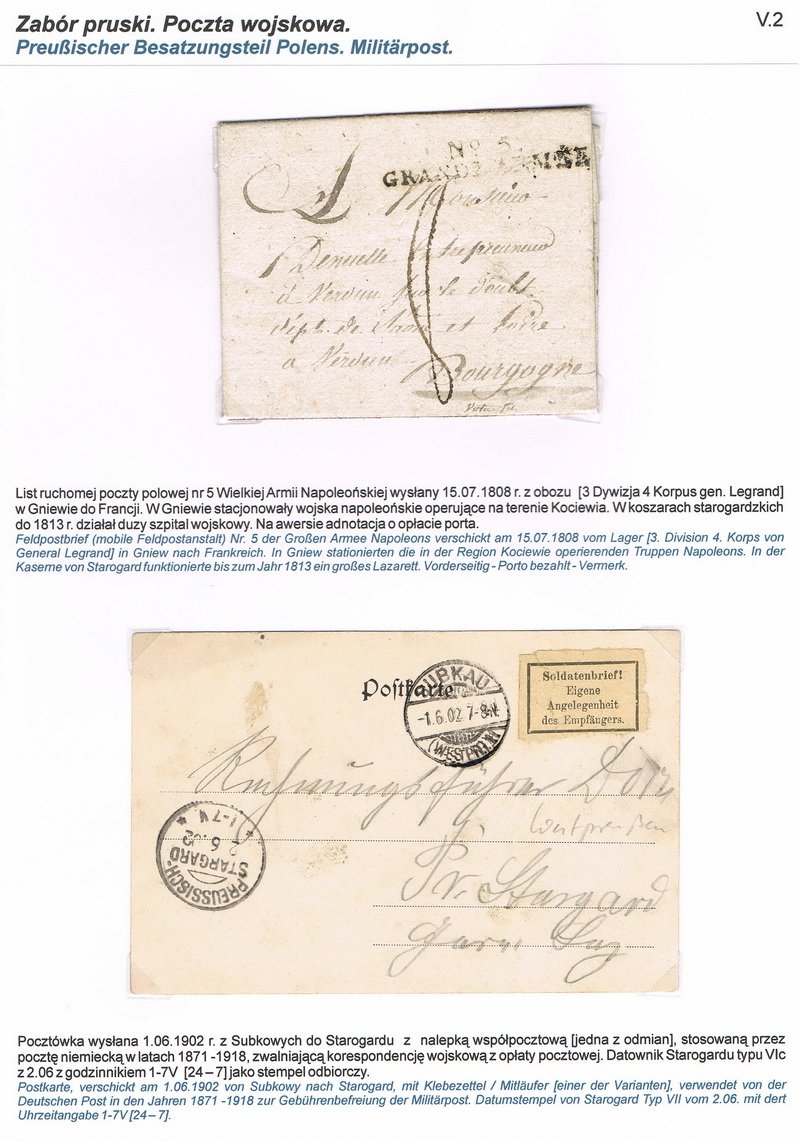 Zabór pruski. Poczta wojskowa.
V.2
Preußischer Besatzungsteil Polens. Militärpost.
No 5.
GRANDE ARMÉE
A Monsieur
Denuelle Entrepreneur
à Verdun sur le doubs
dépt. de Saone et Loire
a Verdun
Bourgogne
List ruchomej poczty polowej nr 5 Wielkiej Armii Napoleońskiej wysłany 15.07.1808 r. z obozu [3 Dywizja 4 Korpus gen. Legrand]
w Gniewie do Francji. W Gniewie stacjonowały wojska napoleońskie operujące na terenie Kociewia. W koszarach starogardzkich
do 1813 r. działał duzy szpital wojskowy. Na awersie adnotacja o opłacie porta.
Feldpostbrief (mobile Feldpostanstalt) Nr. 5 der Großen Armee Napoleons verschickt am 15.07.1808 vom Lager [3. Division 4. Korps von
General Legrand] in Gniew nach Frankreich. In Gniew stationierten die in der Region Kociewie operierenden Truppen Napoleons. In der
Kaserne von Starogard funktionierte bis zum Jahr 1813 ein großes Lazarett. Vorderseitig - Porto bezahlt - Vermerk.
Postkarte
SUBKAU
-1.6.02 7-8N.
(WESTPR.)
Soldatenbrief!
Eigene
Angelegenheit
des Empfängers.
Rechnungsführer
Westpreußen
Pr. Stargard
PREUSSISCH-
STARGARD
2.6.02
1-7V
Pocztówka wysłana 1.06.1902 r. z Subkowych do Starogardu z nalepką współpocztową [jedna z odmian], stosowaną przez
pocztę niemiecką w latach 1871 -1918, zwalniającą korespondencję wojskową z opłaty pocztowej. Datownik Starogardu typu VIc
z 2.06 z godzinnikiem 1-7V [24 – 7] jako stempel odbiorczy.
Postkarte, verschickt am 1.06.1902 von Subkowy nach Starogard, mit Klebezettel / Mitläufer [einer der Varianten], verwendet von der
Deutschen Post in den Jahren 1871 -1918 zur Gebührenbefreiung der Militärpost. Datumstempel von Starogard Typ VII vom 2.06. mit dert
Uhrzeitangabe 1-7V [24 – 7].